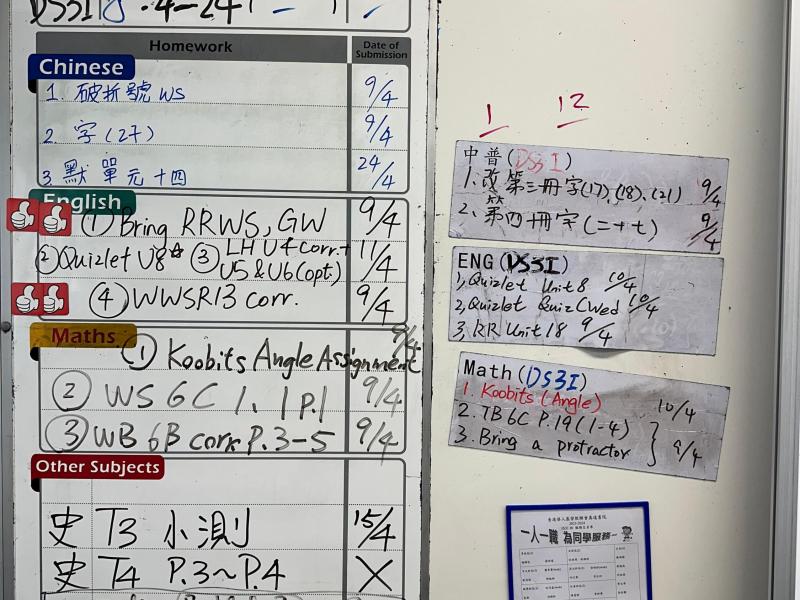 Homework
Date of Submission
Chinese
1. 破折號 WS 9/4
2. 字(27) 9/4
3. 默單元十四 24/4
English
① Bring RRWS, GW 9/4
② Quizlet U8 ③ LH U4 corr. + U5 & U6 (opt.) 11/4
④ WWSR13 corr. 9/4
Maths
① Koobits Angle Assignment 9/4
② WS 6C 1.1 P.1 9/4
③ WB 6B corr. P.3-5 9/4
Other Subjects
史 T3 小測 15/4
史 T4 P.3~P.4 X
1 12
中普(DS3I)
1. 改第三冊字(17),(18),(21) 9/4
2. 第四冊字(二十七) 9/4
ENG (DS3I)
1, Quizlet Unit 8 10/4
2, Quizlet Quiz (Wed 10/4
3, RR Unit 18 9/4
Math (DS3I)
1. Koobits (Angle) 10/4
2. TB 6C P.19 (1-4)
3. Bring a protractor } 9/4
一人一職 為同學服務